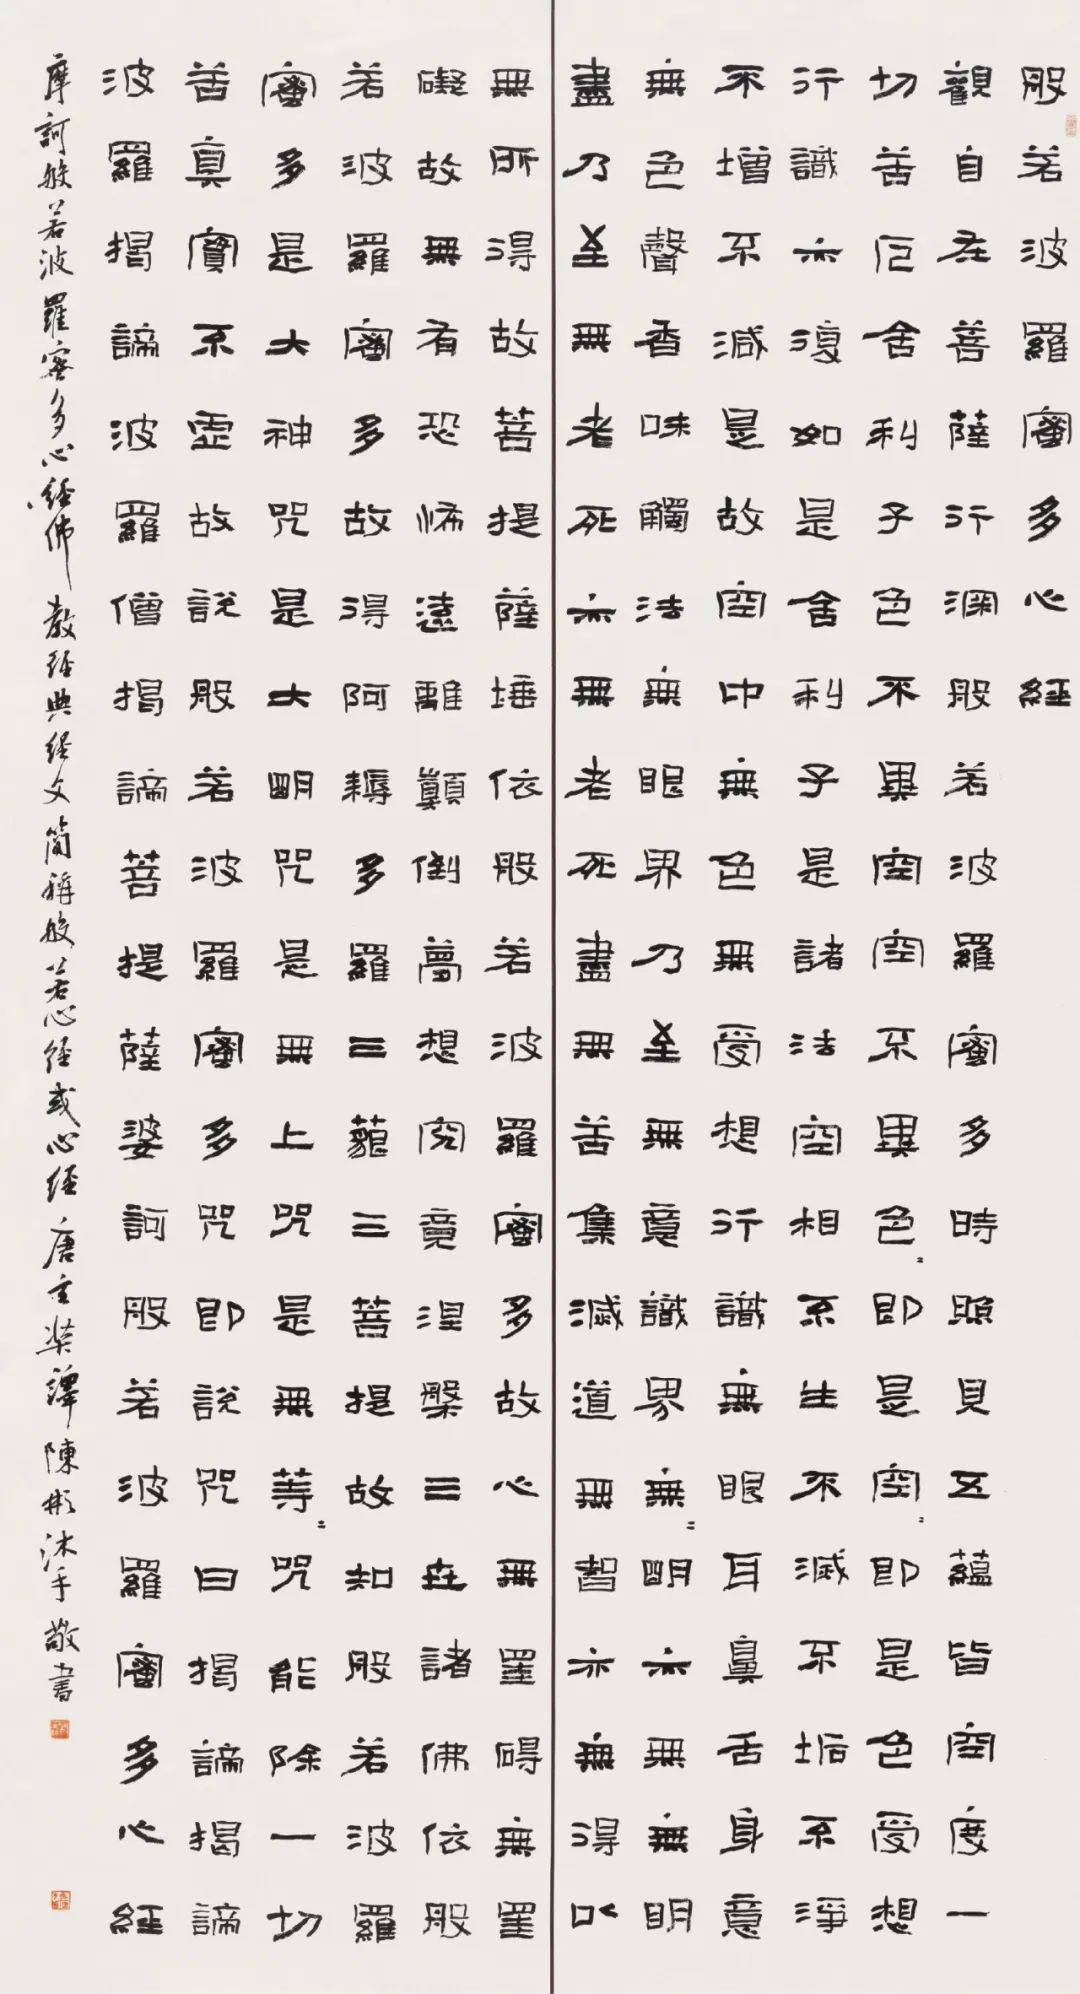 般若波羅蜜多心經
觀自在菩薩行深般若波羅蜜多時照見五蘊皆空度一
切苦厄舍利子色不異空空不異色〻即是空〻即是色受想
行識亦復如是舍利子是諸法空相不生不滅不垢不淨
不增不減是故空中無色無受想行識無眼耳鼻舌身意
無色聲香味觸法無眼界乃至無意識界無〻明亦無無明
盡乃至無老死亦無老死盡無苦集滅道無智亦無得以
無所得故菩提薩埵依般若波羅蜜多故心無罣碍無罣
礙故無有恐怖遠離顛倒夢想究竟涅槃三世諸佛依般
若波羅蜜多故得阿耨多羅三藐三菩提故知般若波羅
蜜多是大神咒是大明咒是無上咒是無等〻咒能除一切
苦真實不虛故說般若波羅蜜多咒即說咒曰揭諦揭諦
波羅揭諦波羅僧揭諦菩提薩婆訶般若波羅蜜多心經
摩訶般若波羅密多心経佛教経典経文简稱般若心経或心経唐玄奘譯陳彬沐手敬書